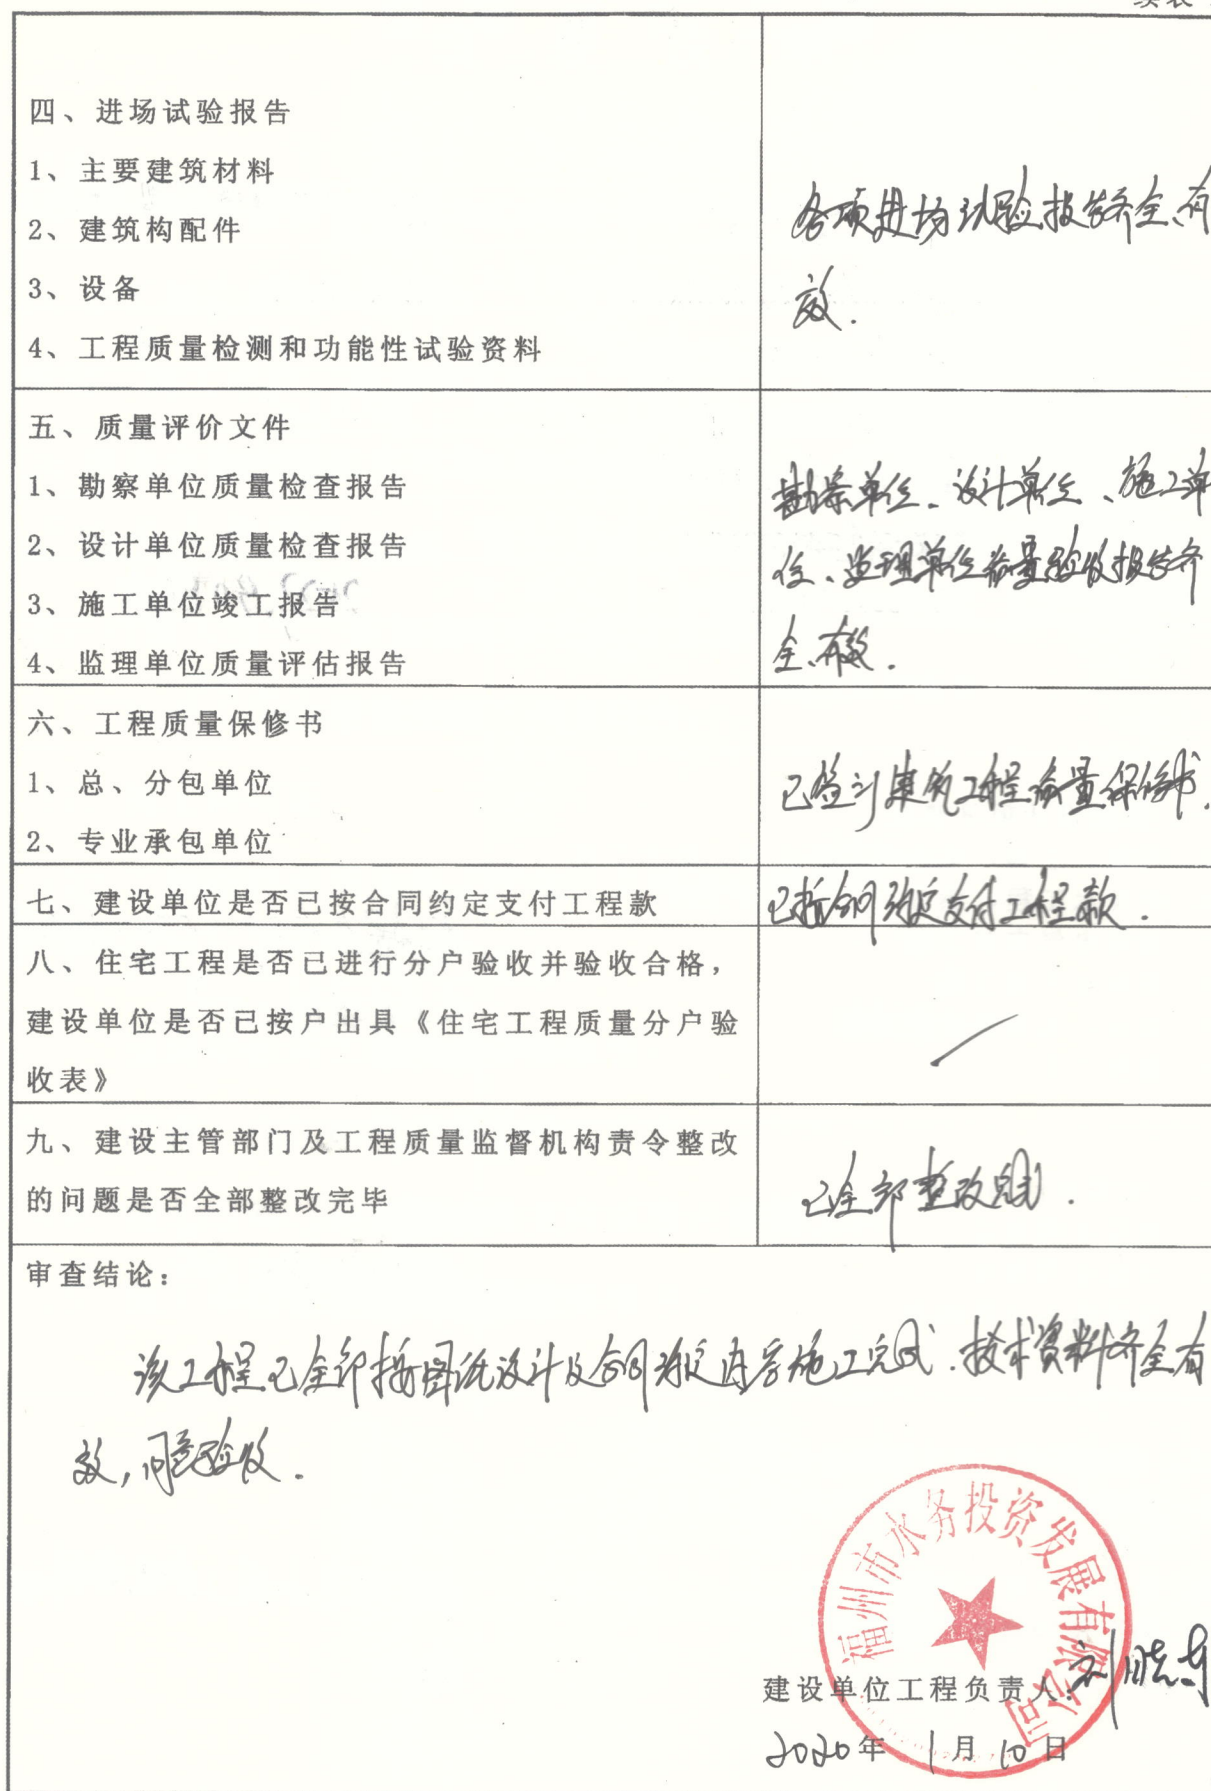 续表
四、进场试验报告
1、主要建筑材料
2、建筑构配件
3、设备
4、工程质量检测和功能性试验资料
各项进场试验报告齐全、有
效.
五、质量评价文件
1、勘察单位质量检查报告
2、设计单位质量检查报告
3、施工单位竣工报告
4、监理单位质量评估报告
勘察单位、设计单位、施工单
位、监理单位质量验收报告齐
全、有效.
六、工程质量保修书
1、总、分包单位
2、专业承包单位
已签订建筑工程质量保修书.
七、建设单位是否已按合同约定支付工程款
已按合同约定支付工程款.
八、住宅工程是否已进行分户验收并验收合格，
建设单位是否已按户出具《住宅工程质量分户验
收表》
九、建设主管部门及工程质量监督机构责令整改
的问题是否全部整改完毕
已全部整改完成.
审查结论：
该工程已全部按图纸设计及合同约定内容施工完成.技术资料齐全有
效,同意验收.
福州市水务投资发展有限公司
建设单位工程负责人：刘晓
2020年 1月 10日